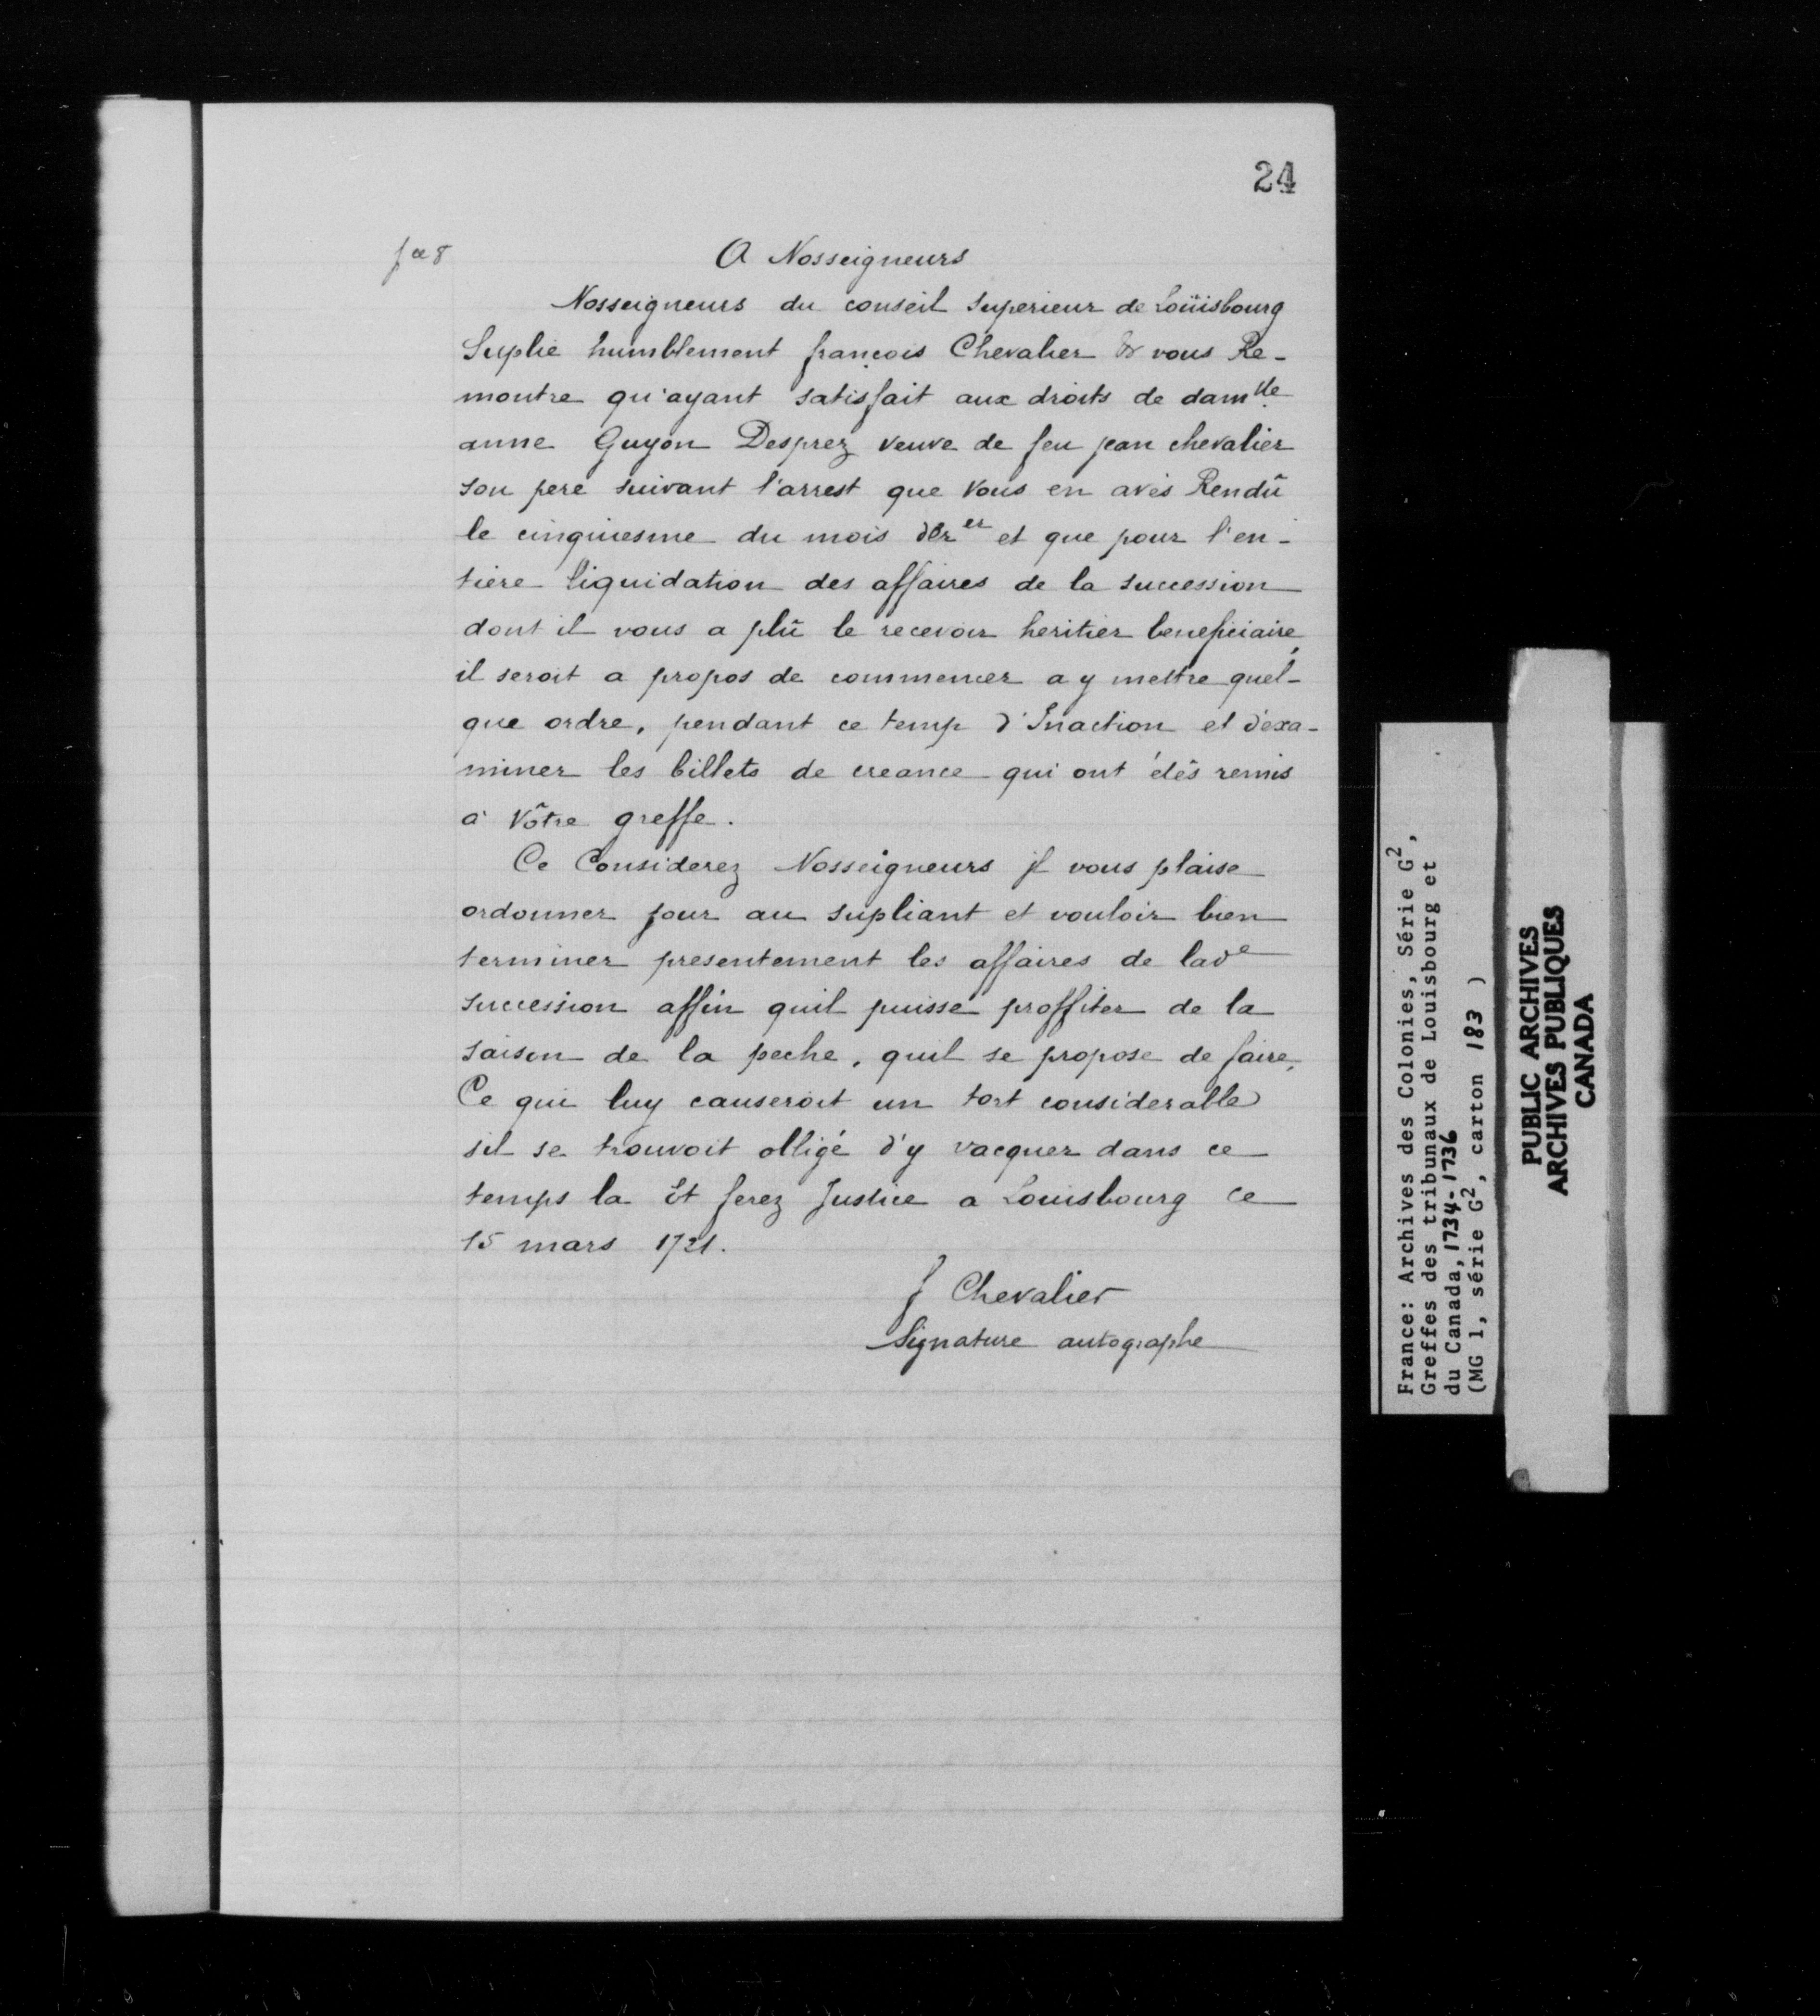 24
A Nosseigneurs
Nosseigneurs du conseil superieur de Loüisbourg
Suplie humblement françois Chevalier & vous Re-
montre qu'ayant satisfait aux droits de damlle
anne Guyon Desprez veuve de feu jean chevalier
son pere suivant l'arrest que Vous en avés Rendû
le cinquiesme du mois der et que pour l'en-
tiere liquidation des affaires de la succession
dont il vous a plû le recevoir heritier beneficiaire,
il seroit a propos de commencer a y mettre quel-
que ordre, pendant ce temp d'Inaction et d'exa-
miner les billets de creance qui ont étés remis
a Vôtre greffe.
Ce Considerez Nosseigneurs jl vous plaise
ordonner jour au supliant et vouloir bien
terminer presentement les affaires de lade
succession affin quil puisse proffiter de la
saison de la peche, quil se propose de faire,
Ce qui luy causeroit un tort considerable
sil se trouvoit obligé d'y vacquer dans ce
temps la Et ferez Justice a Louisbourg ce
15 mars 1721.
f Chevalier
Signature autographe
France: Archives des Colonies, Série G2,
Greffes des tribunaux de Louisbourg et
du Canada, 1734-1736
(MG 1, série G2, carton 183 )
PUBLIC ARCHIVES
ARCHIVES PUBLIQUES
CANADA